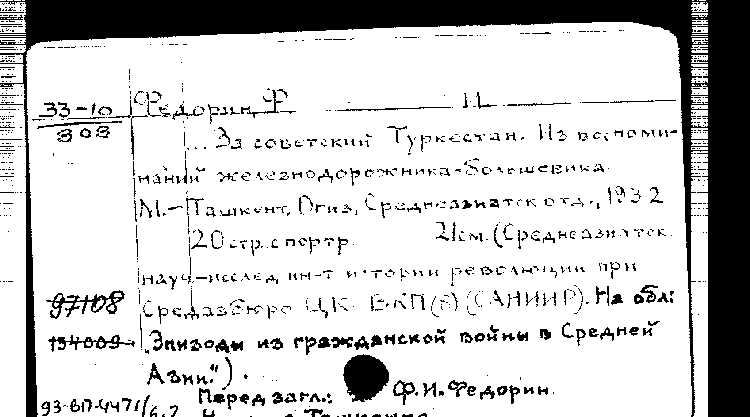 33-10 Федорин, Ф И.
808 ... За советский Туркестан. Из воспоми-
наний железнодорожника-большевика.
М.-Ташкент, Огиз, Среднеазиатск отд., 1932
20стр. с портр. 21см. (Среднеазиатск.
науч-исслед. ин-т истории революции при
97108 Средазбюро ЦК ВКП(б) (САНИИР). На обл:
134009 „Эпизоды из гражданской войны в Средней
Азии.").
Перед загл.: Ф.И.Федорин.
93-617-4471/6,2